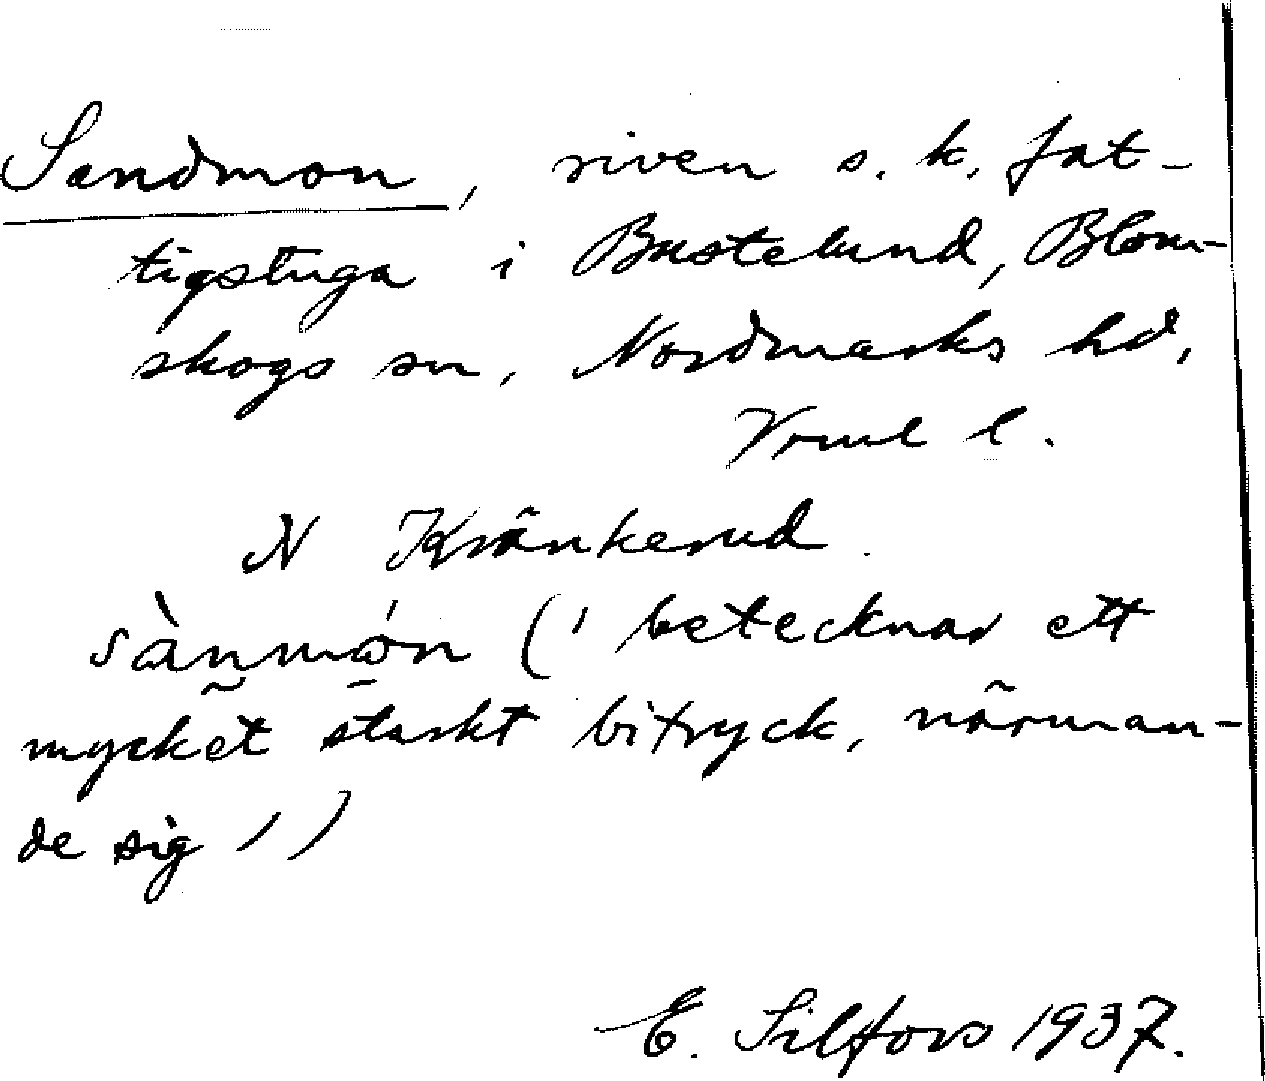 Sandmon, riven s. k. fat-
tigstuga i Bustelund, Blom-
skogs sn, Nordmarks hd,
Vrml l.
N Kränkerud.
sànmón (' betecknar ett
mycket starkt bitryck, närman-
de sig ′)
E. Silfors 1937.